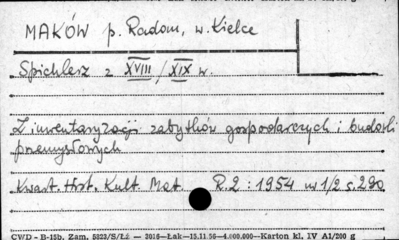 MAKÓW p. Radom, w. Kielce
Spichlerz z XVIII/XIX w.
Z inwentaryzacji zabytków gospodarczych i budowli
przemysłowych
Kwart. Hist. Kult. Mat. R.2 : 1954 nr 1/2 s. 290
CWD - B-15b, Zam. 5823/S/Łż — 2016—Łak—15.11.56—4.000.000—Karton kl. IV A1/200 g